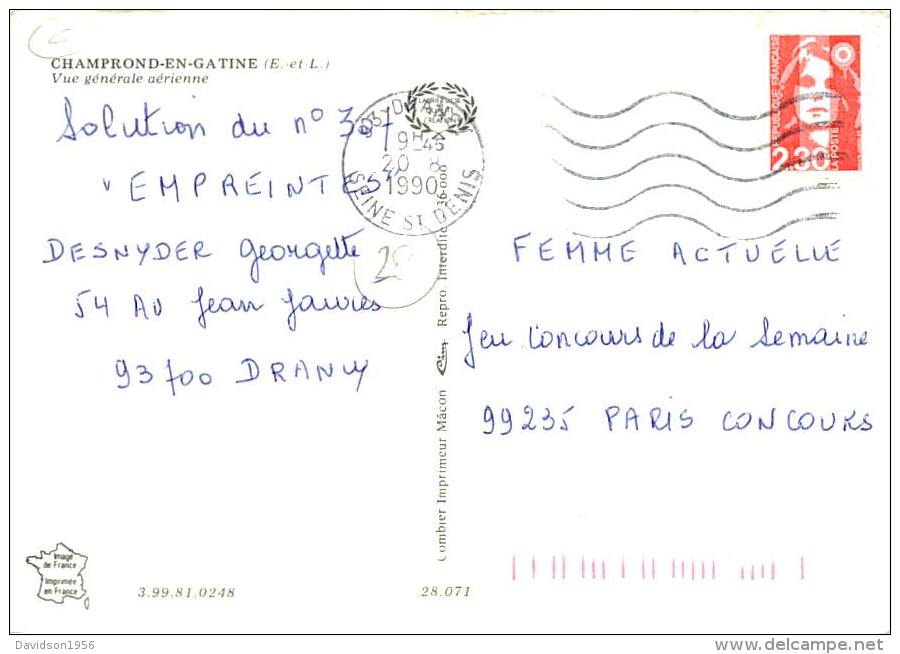 CHAMPROND-EN-GATINE (E.-et-L.)
Vue générale aérienne
Solution du n° 307
" EMPREINTES"
DESNYDER Georgette
54 AV Jean Jaures
93700 DRANCY
28
19H45
20 8
1990
SEINE ST DENIS
REPUBLIQUE FRANÇAISE
2,30
LA POSTE
FEMME ACTUELLE
Jeu Concours de la Semaine
99235 PARIS CONCOURS
Combier Imprimeur Mâcon Cim Repro. Interdite
Image
de France
Imprimée
en France
3.99.81.0248
28.071
Davidson1956
www.delcampe.net